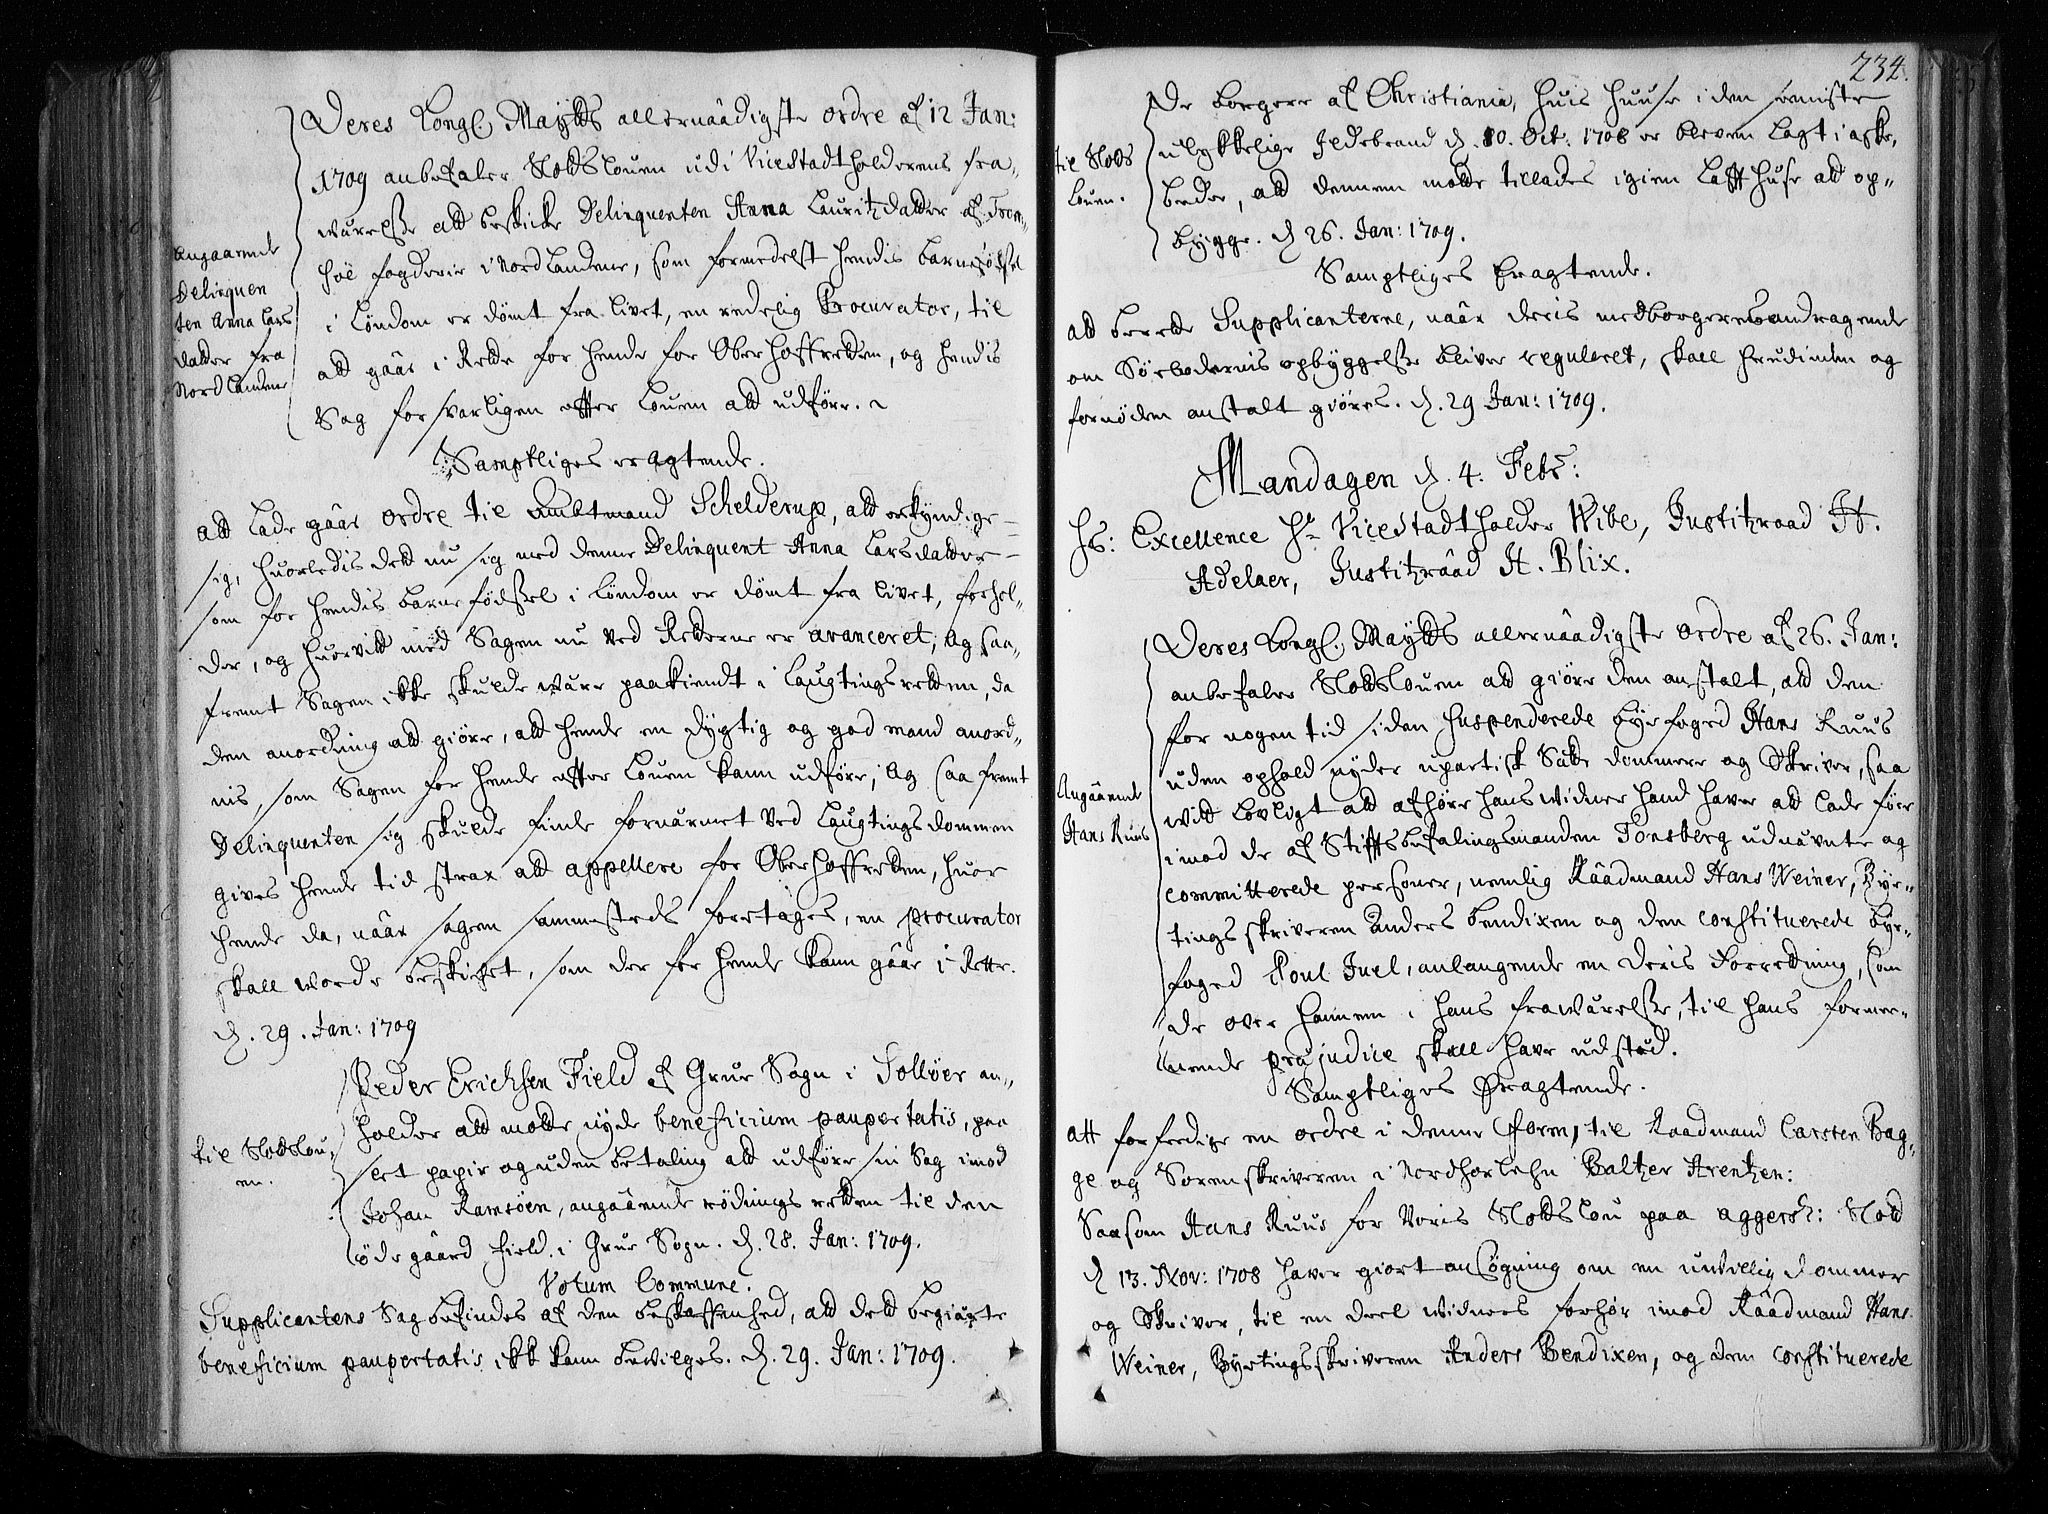 Deres Kongl. Maytts allernaadigste ordre af 12 Jan:
1709 anbefaler Slottslouen udi Vicestadtholderens fra-
wærelsse att beskicke Delinquenten Anna Lauritzdatter af Trom-
Angaaende
Delinquen
ten Anna Lars
datter fra
Nordlandene
søe fogderie i Nordlandene, som formedelst hendis barnefødsel
i Løndom er dømt fra livet, en redelig Procurator, til
att gaar i Rette for hende for Ober Hoffretten, og hendis
Sag forsvarligen effter Louen att udføre.
Samptliges eragtende.
att lade gaar ordre til Ambtmand Schelderup, att erkyndige
sig, huorledis dett nu sig med denne Delinquent Anna Larsdatter
som for hendis barnefødssel i Løndom er dømt fra livet, forhol-
der, og huorvitt med Sagen nu ved Retterne er avanceret; Og saa-
fremt Sagen ikke skulde være paakiendt i Laugtingsretten, da
den anordning att giøre, att hende en dygtig og god mand anord-
nis, som Sagen for hende effter Louen kann udføre; Og saa fremt
Delinquenten sig skulde finde fornærmet ved Laugtingsdommen
gives hende tid strax att appellere for Oberhoffretten, huor
hende da, naar sagen sammesteds foretages, en procurator
skall worde beskicket, som der for hende kann gaar i Rette.
d. 29. Jan: 1709
Peder Erichsen Field af Grue Sogn i Solløer an-
til Slottslou-
en.
holder att motte nyde beneficium paupertatis, paa
slet papir og uden betaling att udføre sin Sag imod
Johan Ramsøen, angaaende rødnings retten til den
øde gaard Field i Grue Sogn. d. 28. Jan: 1709.
Votum Commune.
Supplicantens Sag befindes af den beskaffenhed, att dett begiærte
beneficium paupertatis ikk kann bevilges. d. 29. Jan: 1709.
234.
De borgere af Christiania, huis huuse i den seniste
til Slotts
Louen.
ulykkelige Ildebrand d. 10. Oct: 1708 er bleven lagt i aske,
beder, att dennem motte tillades igien Lafft huse att op-
bygge. d. 26. Jan: 1709.
Samptliges Eragtende.
att berette Supplicanterne, naar deris medborgeres andragende
om Søebodernis opbyggelse bliver reguleret, skall herudinden og
fornøden anstalt giøres. d. 29 Jan: 1709.
Mandagen d. 4. Febr:
Hs: Excellence Hr Vicestadtholder Wibe, Justitzraad H.
Adelaer, Justitzraad H. Blix.
Deres Kongl. Maytts allernaadigste ordre af 26. Jan:
anbefaler Slottslouen att giøre den anstalt, att den
for nogen tid siden suspenderede byefoged Hans Ruus
Angaaende
Hans Ruus
uden ophold nyder upartisk Sætte dommere og Skriver, saa
vitt lovligt att afhøre hans widner hand haver att lade føer
imod de af Stifftsbefalingsmanden Tonsberg udnævnte og
committerede personer, nemlig Raadmand Hans Weiner, Bye-
tings skriveren Anders Bendixen og den constituerede bye-
foged Poul Juel, anlangende en deris Forretning, som
de over hannem i hans frawærelsse, til hans formee-
nende præjudice skall have udsted.
Samptliges Eragtende.
att forferdige en ordre i denne form, til Raadmand Carsten Bag-
ge og Sorenskriveren i Nordhorlehn Baltzer Arentzen:
Saasom Hans Ruus for Voris Slottslou paa Aggersh: Slott
d 13. Nov: 1708 haver giort ansøgning om en uvillig dommer
og Skriver, til en deel widners forhør imod Raadmand Hans
Weiner, Byetingsskriveren Anders Bendixen, og den constituerede